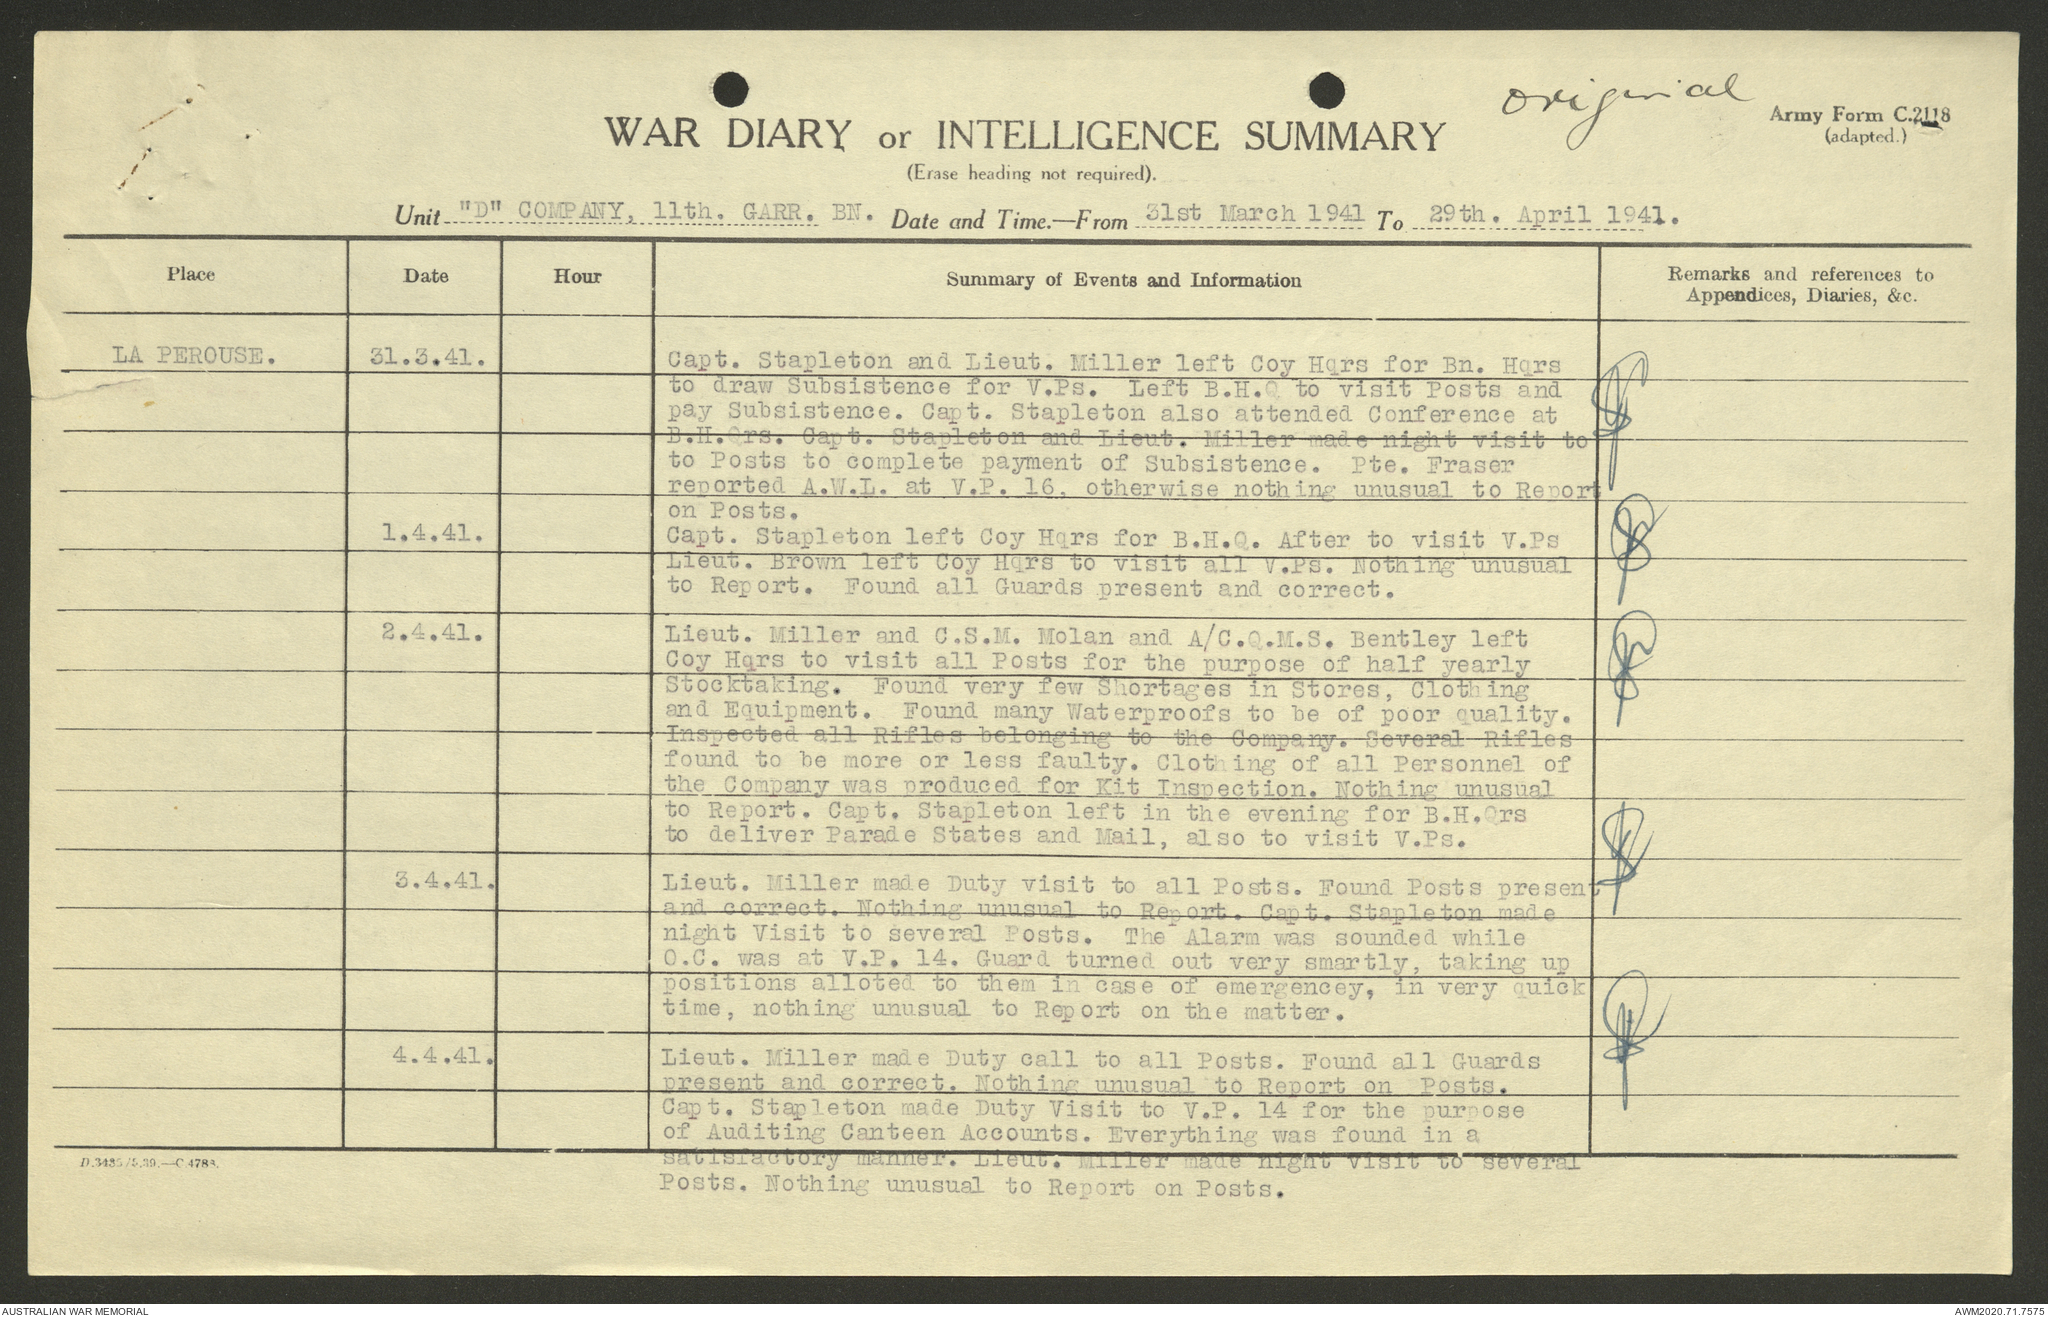 original
Army Form C.2118
(adapted.)
WAR DIARY or INTELLIGENCE SUMMARY
(Erase heading not required).
Unit "D" COMPANY, 11th. GARR. BN. Date and Time.—From 31st March 1941 To 29th. April 1941.
Place Date Hour Summary of Events and Information Remarks and references to
Appendices, Diaries, &c.
LA PEROUSE. 31.3.41. Capt. Stapleton and Lieut. Miller left Coy Hqrs for Bn. Hqrs
to draw Subsistence for V.Ps. Left B.H.Q to visit Posts and
pay Subsistence. Capt. Stapleton also attended Conference at
B.H.Qrs. Capt. Stapleton and Lieut. Miller made night visit to
to Posts to complete payment of Subsistence. Pte. Fraser
reported A.W.L. at V.P. 16, otherwise nothing unusual to Report
on Posts.
1.4.41. Capt. Stapleton left Coy Hqrs for B.H.Q. After to visit V.Ps
Lieut. Brown left Coy Hqrs to visit all V.Ps. Nothing unusual
to Report. Found all Guards present and correct.
2.4.41. Lieut. Miller and C.S.M. Molan and A/C.Q.M.S. Bentley left
Coy Hqrs to visit all Posts for the purpose of half yearly
Stocktaking. Found very few Shortages in Stores, Clothing
and Equipment. Found many Waterproofs to be of poor quality.
Inspected all Rifles belonging to the Company. Several Rifles
found to be more or less faulty. Clothing of all Personnel of
the Company was produced for Kit Inspection. Nothing unusual
to Report. Capt. Stapleton left in the evening for B.H.Qrs
to deliver Parade States and Mail, also to visit V.Ps.
3.4.41. Lieut. Miller made Duty visit to all Posts. Found Posts present
and correct. Nothing unusual to Report. Capt. Stapleton made
night Visit to several Posts. The Alarm was sounded while
O.C. was at V.P. 14. Guard turned out very smartly, taking up
positions alloted to them in case of emergencey, in very quick
time, nothing unusual to Report on the matter.
4.4.41. Lieut. Miller made Duty call to all Posts. Found all Guards
present and correct. Nothing unusual to Report on Posts.
Capt. Stapleton made Duty Visit to V.P. 14 for the purpose
of Auditing Canteen Accounts. Everything was found in a
satisfactory manner. Lieut. Miller made night visit to several
Posts. Nothing unusual to Report on Posts.
AUSTRALIAN WAR MEMORIAL
AWM2020.71.7575